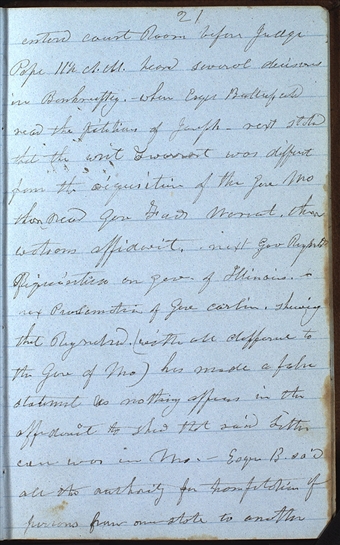 21
entered court Room before Judge
Pope 11¼ A.M. heard several decisions
in Bankruptcy. when Esqr Butterfield
read the petition of Joseph - next stated
that the writ & warrant was different
from the requisition of the Gov Mo
then Read Gov Fords Warrant. then
watsons affidavit. next Gov Reynolds
Requisition on gov. of Illinois. -
nex Proclamation of Gov carlin. shewing
that Reynolds (with all defference to
the Gov of Mo) has made a false
statement as nothing appears in the
affidavit to shew that said Smith
ever was in Mo. - Esqr B. sa'd
all the authority for transportation of
persons from one state to another